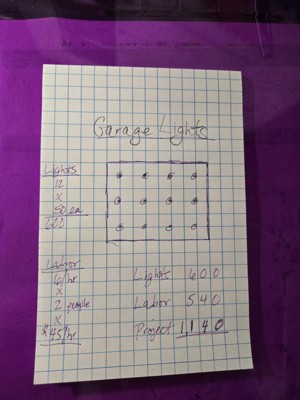 Garage Lights
Lights
12
x
50 ea
600
Labor
6/hr
x
2 people
x
$45/hr
Lights 600
Labor 540
Project 1,140